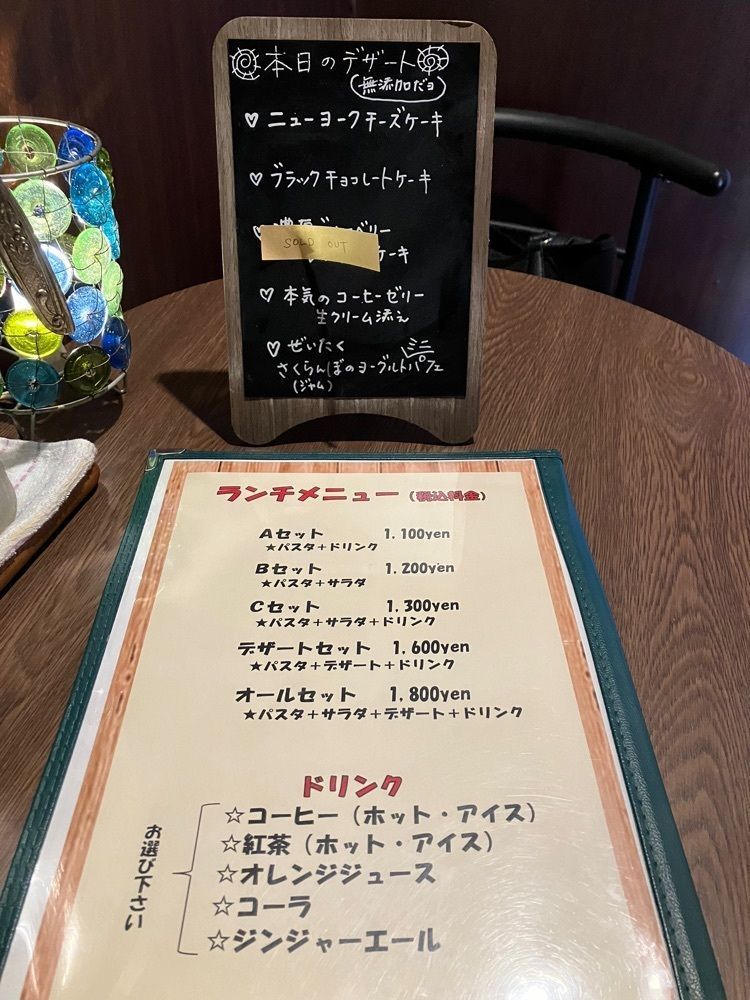 本日のデザート
(無添加だョ)
♡ニューヨークチーズケーキ
♡ブラックチョコレートケーキ
SOLD OUT
ケーキ
♡本気のコーヒーゼリー
生クリーム添え
♡ぜいたく
さくらんぼのヨーグルトパフェ
ミニ
(ジャム)
ランチメニュー(税込料金)
Aセット 1,100yen
★パスタ+ドリンク
Bセット 1,200yen
★パスタ+サラダ
Cセット 1,300yen
★パスタ+サラダ+ドリンク
デザートセット 1,600yen
★パスタ+デザート+ドリンク
オールセット 1,800yen
★パスタ+サラダ+デザート+ドリンク
ドリンク
お選び下さい
☆コーヒー(ホット・アイス)
☆紅茶(ホット・アイス)
☆オレンジジュース
☆コーラ
☆ジンジャーエール